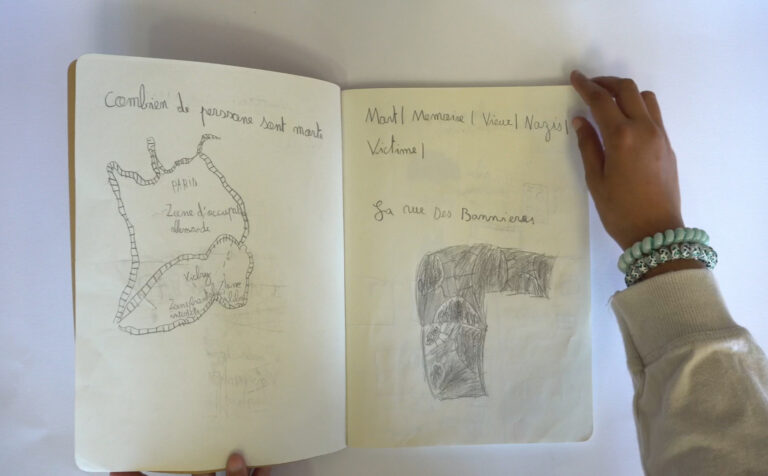 Combien de perssone sont morts
PARID
Zone d'occupat
allemande
Vichy
Zone
interdite
Mort | Memoire | Vieux | Nazis |
Victime |
La rue Des Bannieres